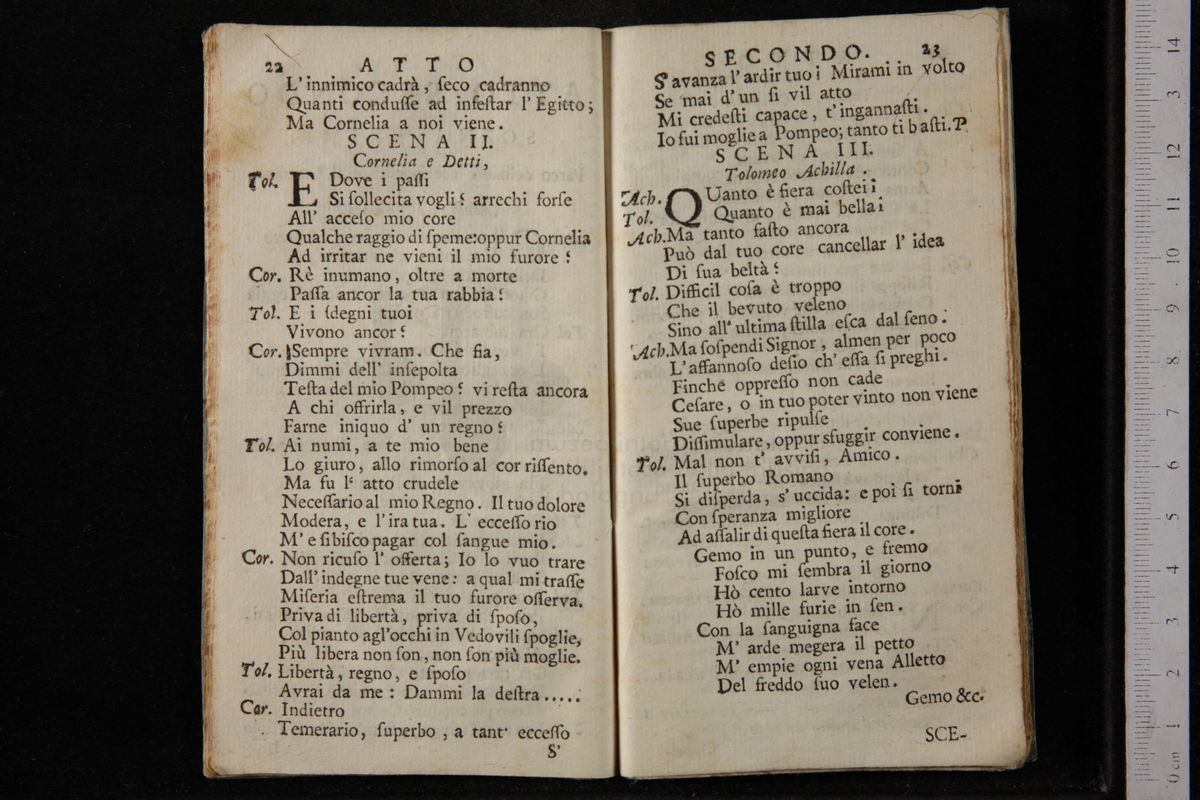 22 ATTO
L' innimico cadrà, ſeco cadranno
Quanti conduſſe ad infeſtar l' Egitto;
Ma Cornelia a noi viene.
SCENA II.
Cornelia e Detti,
Tol. E Dove i paſſi
Si ſollecita vogli? arrechi forſe
All' acceſo mio core
Qualche raggio di ſpeme:oppur Cornelia
Ad irritar ne vieni il mio furore?
Cor. Rè inumano, oltre a morte
Paſſa ancor la tua rabbia?
Tol. E i ſdegni tuoi
Vivono ancor?
Cor. Sempre vivram. Che fia,
Dimmi dell' inſepolta
Teſta del mio Pompeo? vi reſta ancora
A chi offrirla, e vil prezzo
Farne iniquo d' un regno?
Tol. Ai numi, a te mio bene
Lo giuro, allo rimorſo al cor riſſento.
Ma fu l' atto crudele
Neceſſario al mio Regno. Il tuo dolore
Modera, e l'ira tua. L' ecceſſo rio
M' eſibiſco pagar col ſangue mio.
Cor. Non ricuſo l' offerta; Io lo vuo trare
Dall' indegne tue vene: a qual mi traſſe
Miſeria eſtrema il tuo furore oſſerva.
Priva di libertà, priva di ſpoſo,
Col pianto agl'occhi in Vedovili ſpoglie,
Più libera non ſon, non ſon più moglie.
Tol. Libertà, regno, e ſpoſo
Avrai da me: Dammi la deſtra.....
Cor. Indietro
Temerario, ſuperbo, a tant' ecceſſo
S'
SECONDO. 23
S' avanza l' ardir tuo! Mirami in volto
Se mai d' un ſi vil atto
Mi credeſti capace, t' ingannaſti.
Io fui moglie a Pompeo; tanto ti baſti. P.
SCENA III.
Tolomeo Achilla.
Ach. QUanto è fiera coſtei!
Tol. Quanto è mai bella!
Ach. Ma tanto faſto ancora
Può dal tuo core cancellar l' idea
Di ſua beltà?
Tol. Difficil coſa è troppo
Che il bevuto veleno
Sino all' ultima ſtilla eſca dal ſeno.
Ach. Ma ſoſpendi Signor, almen per poco
L' affannoſo deſio ch' eſſa ſi preghi.
Finchè oppreſſo non cade
Ceſare, o in tuo poter vinto non viene
Sue ſuperbe ripulſe
Diſſimulare, oppur sfuggir conviene.
Tol. Mal non t' avviſi, Amico.
Il ſuperbo Romano
Si diſperda, s' uccida: e poi ſi torni
Con ſperanza migliore
Ad aſſalir di queſta fiera il core.
Gemo in un punto, e fremo
Foſco mi ſembra il giorno
Hò cento larve intorno
Hò mille furie in ſen.
Con la ſanguigna face
M' arde megera il petto
M' empie ogni vena Alletto
Del freddo ſuo velen.
Gemo &c.
SCE-
14
3
13
12
11
10
9
8
7
6
5
4
3
2
1
0 cm